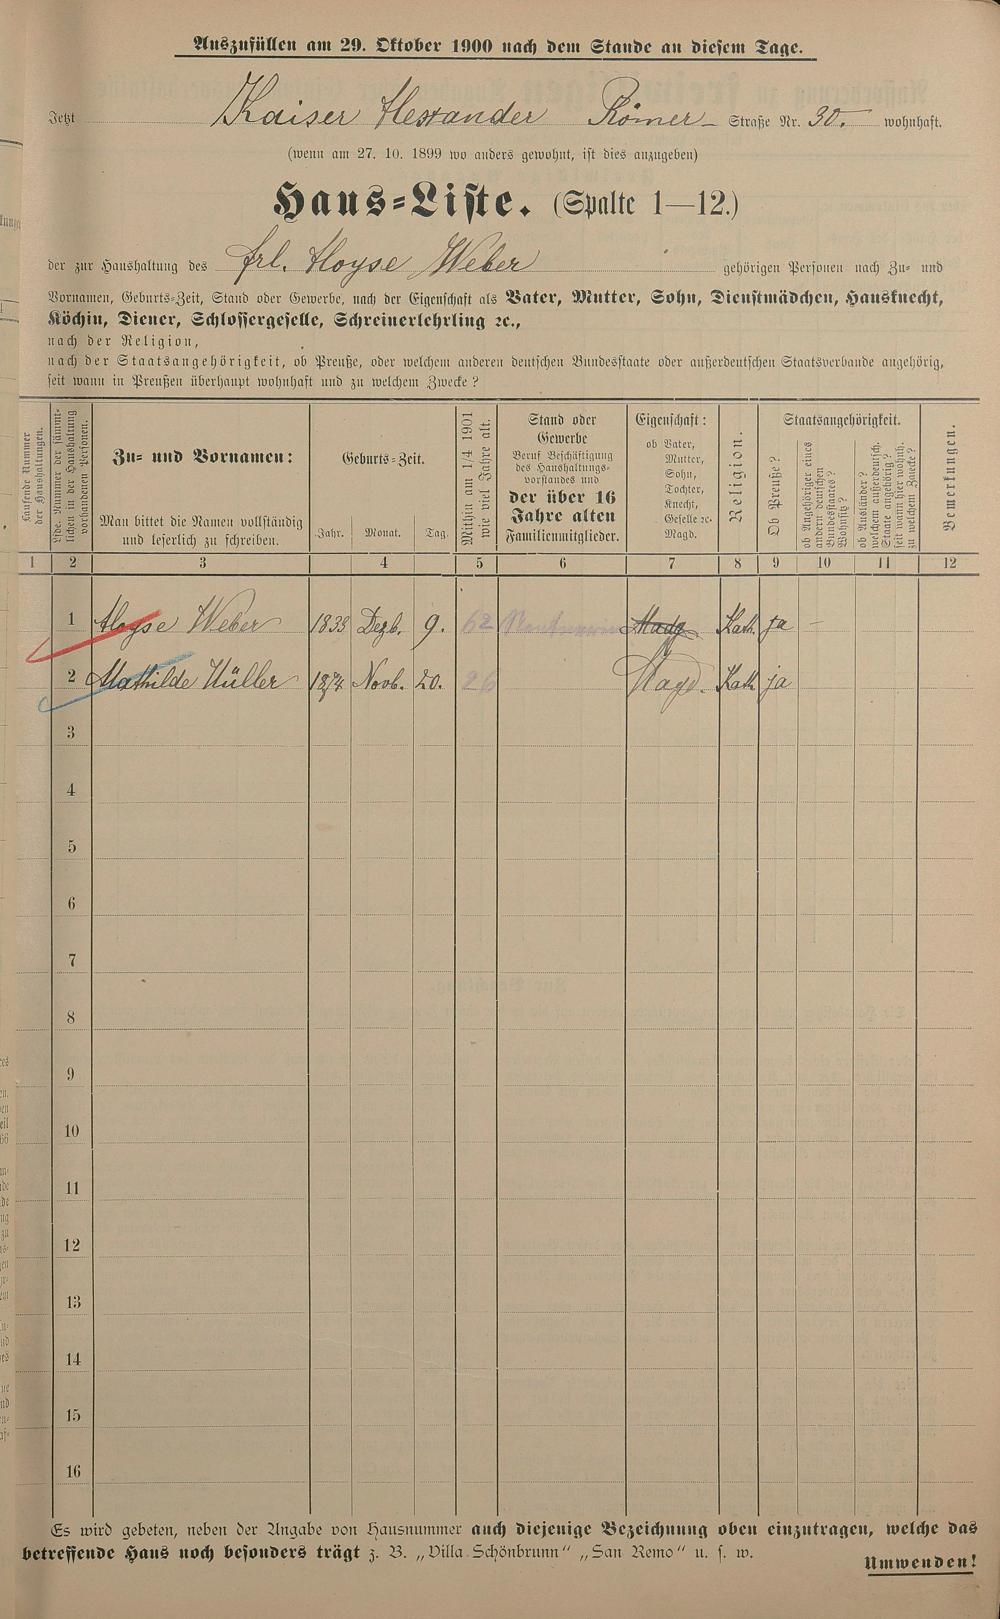 Auszufüllen am 29. Oktober 1900 nach dem Stande an diesem Tage.
Jetzt Kaiser Alexander Römer- Straße Nr. 30. wohnhaft.
(wenn am 27. 10. 1899 wo anders gewohnt, ist dies anzugeben)
Haus-Liste. (Spalte 1—12.)
der zur Haushaltung des Frl. Aloyse Weber gehörigen Personen nach Zu- und
Vornamen, Geburts-Zeit, Stand oder Gewerbe, nach der Eigenschaft als Vater, Mutter, Sohn, Dienstmädchen, Hausknecht,
Köchin, Diener, Schlossergeselle, Schreinerlehrling ꝛc.,
nach der Religion,
nach der Staatsangehörigkeit, ob Preuße, oder welchem anderen deutschen Bundesstaate oder außerdeutschen Staatsverbande angehörig,
seit wann in Preußen überhaupt wohnhaft und zu welchem Zwecke?
Laufende Nummer
der Haushaltungen.
Lfde. Nummer der sämmt-
lichen in der Haushaltung
vorhandenen Personen.
Zu- und Vornamen:
Man bittet die Namen vollständig
und leserlich zu schreiben.
Geburts-Zeit.
Jahr. Monat. Tag.
Mithin am 1/4 1901
wie viel Jahre alt.
Stand oder
Gewerbe
Beruf Beschäftigung
des Haushaltungs-
vorstandes und
der über 16
Jahre alten
Familienmitglieder.
Eigenschaft:
ob Vater,
Mutter,
Sohn,
Tochter,
Knecht,
Geselle ꝛc.
Magd.
Religion.
Staatsangehörigkeit.
Ob Preuße?
ob Angehöriger eines
andern deutschen
Bundesstaates?
Wohnsitz?
ob Ausländer?
welchem außerdeutsch.
Staate angehörig?
seit wann hier wohnh.
zu welchem Zwecke?
Bemerkungen.
1 2 3 4 5 6 7 8 9 10 11 12
1 Aloyse Weber 1833 Dezb. 9. 62 Rentnerin Magd Kath. ja –
2 Mathilde Müller 1874 Novb. 20. 26 Magd. Kath. ja
3
4
5
6
7
8
9
10
11
12
13
14
15
16
Es wird gebeten, neben der Angabe von Hausnummer auch diejenige Bezeichnung oben einzutragen, welche das
betreffende Haus noch besonders trägt z. B. „Villa Schönbrunn" „San Remo" u. s. w.
Umwenden!